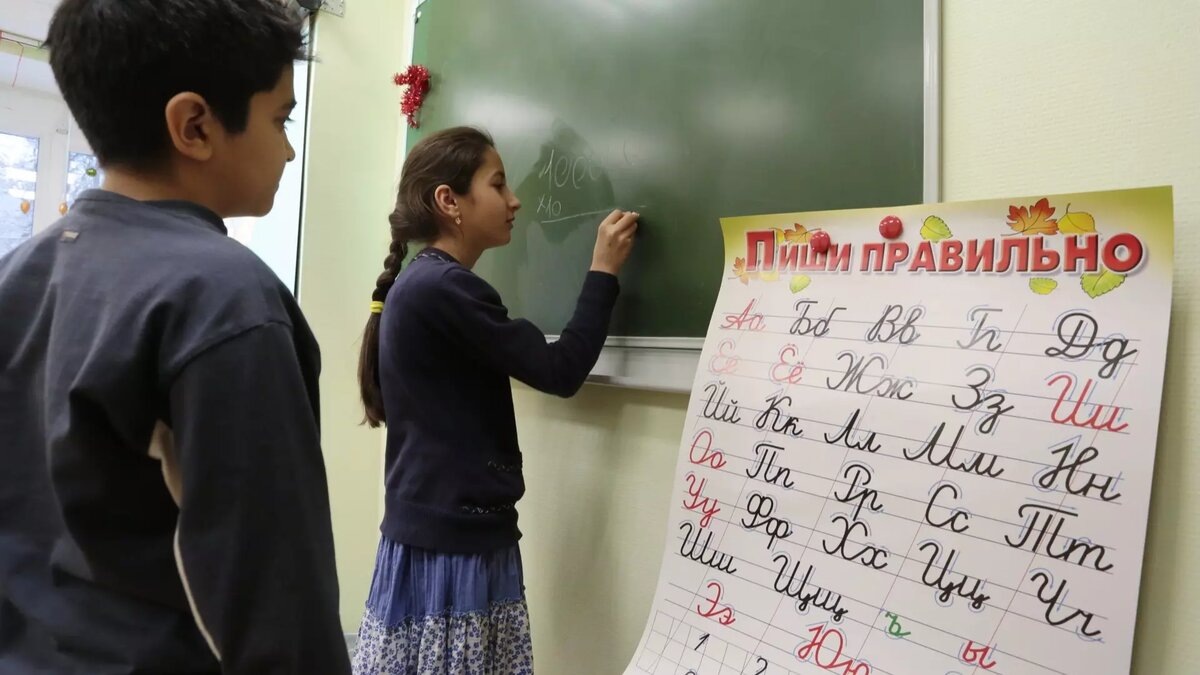 1000
ПИШИ ПРАВИЛЬНО
Аа Бб Вв Гг Дд
Ее Ёё Жж Зз Ии
Йй Кк Лл Мм Нн
Оо Пп Рр Сс Тт
Уу Фф Хх Цц Чч
Шш Щщ ъ ы
Ээ Юю
1 2